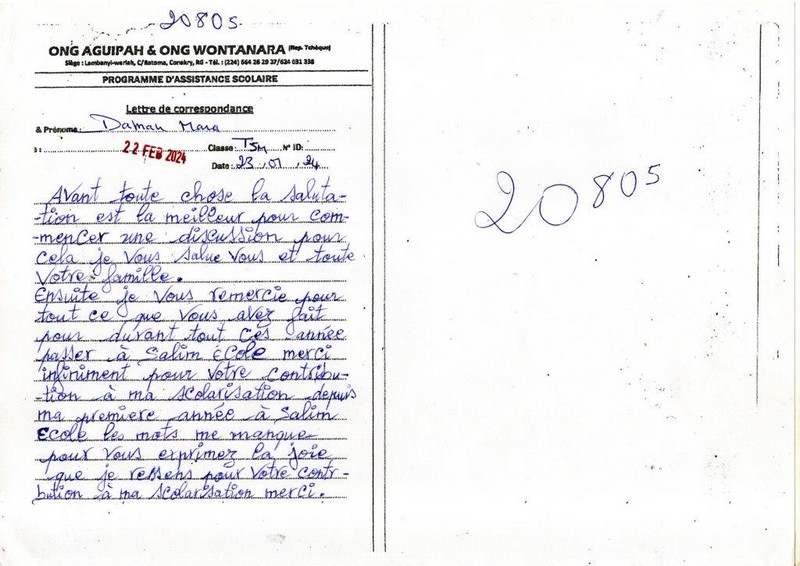 20805
ONG AGUIPAH & ONG WONTANARA (Rep. Tchèque)
Siège : Lambanyi-wariah, C/Ratoma, Conakry, RG - Tél. : (224) 664 26 29 37/624 031 338
PROGRAMME D'ASSISTANCE SCOLAIRE
Lettre de correspondance
& Prénoms: Daman Mara
22 FEB 2024
Classe: TSM N° ID:
Date: 23 01 24
Avant toute chose la saluta-
-tion est la meilleur pour com-
-mencer une discussion pour
cela je vous salue vous et toute
votre famille.
Ensuite je vous remercie pour
tout ce que vous avez fait
pour durant tout ces année
passer à Salim Ecole merci
infiniment pour votre contribu-
-tion à ma scolarisation depuis
ma premiere année à Salim
Ecole les mots me manque
pour vous exprimez la joie
que je ressens pour votre contr-
bution à ma scolarisation merci.
20805